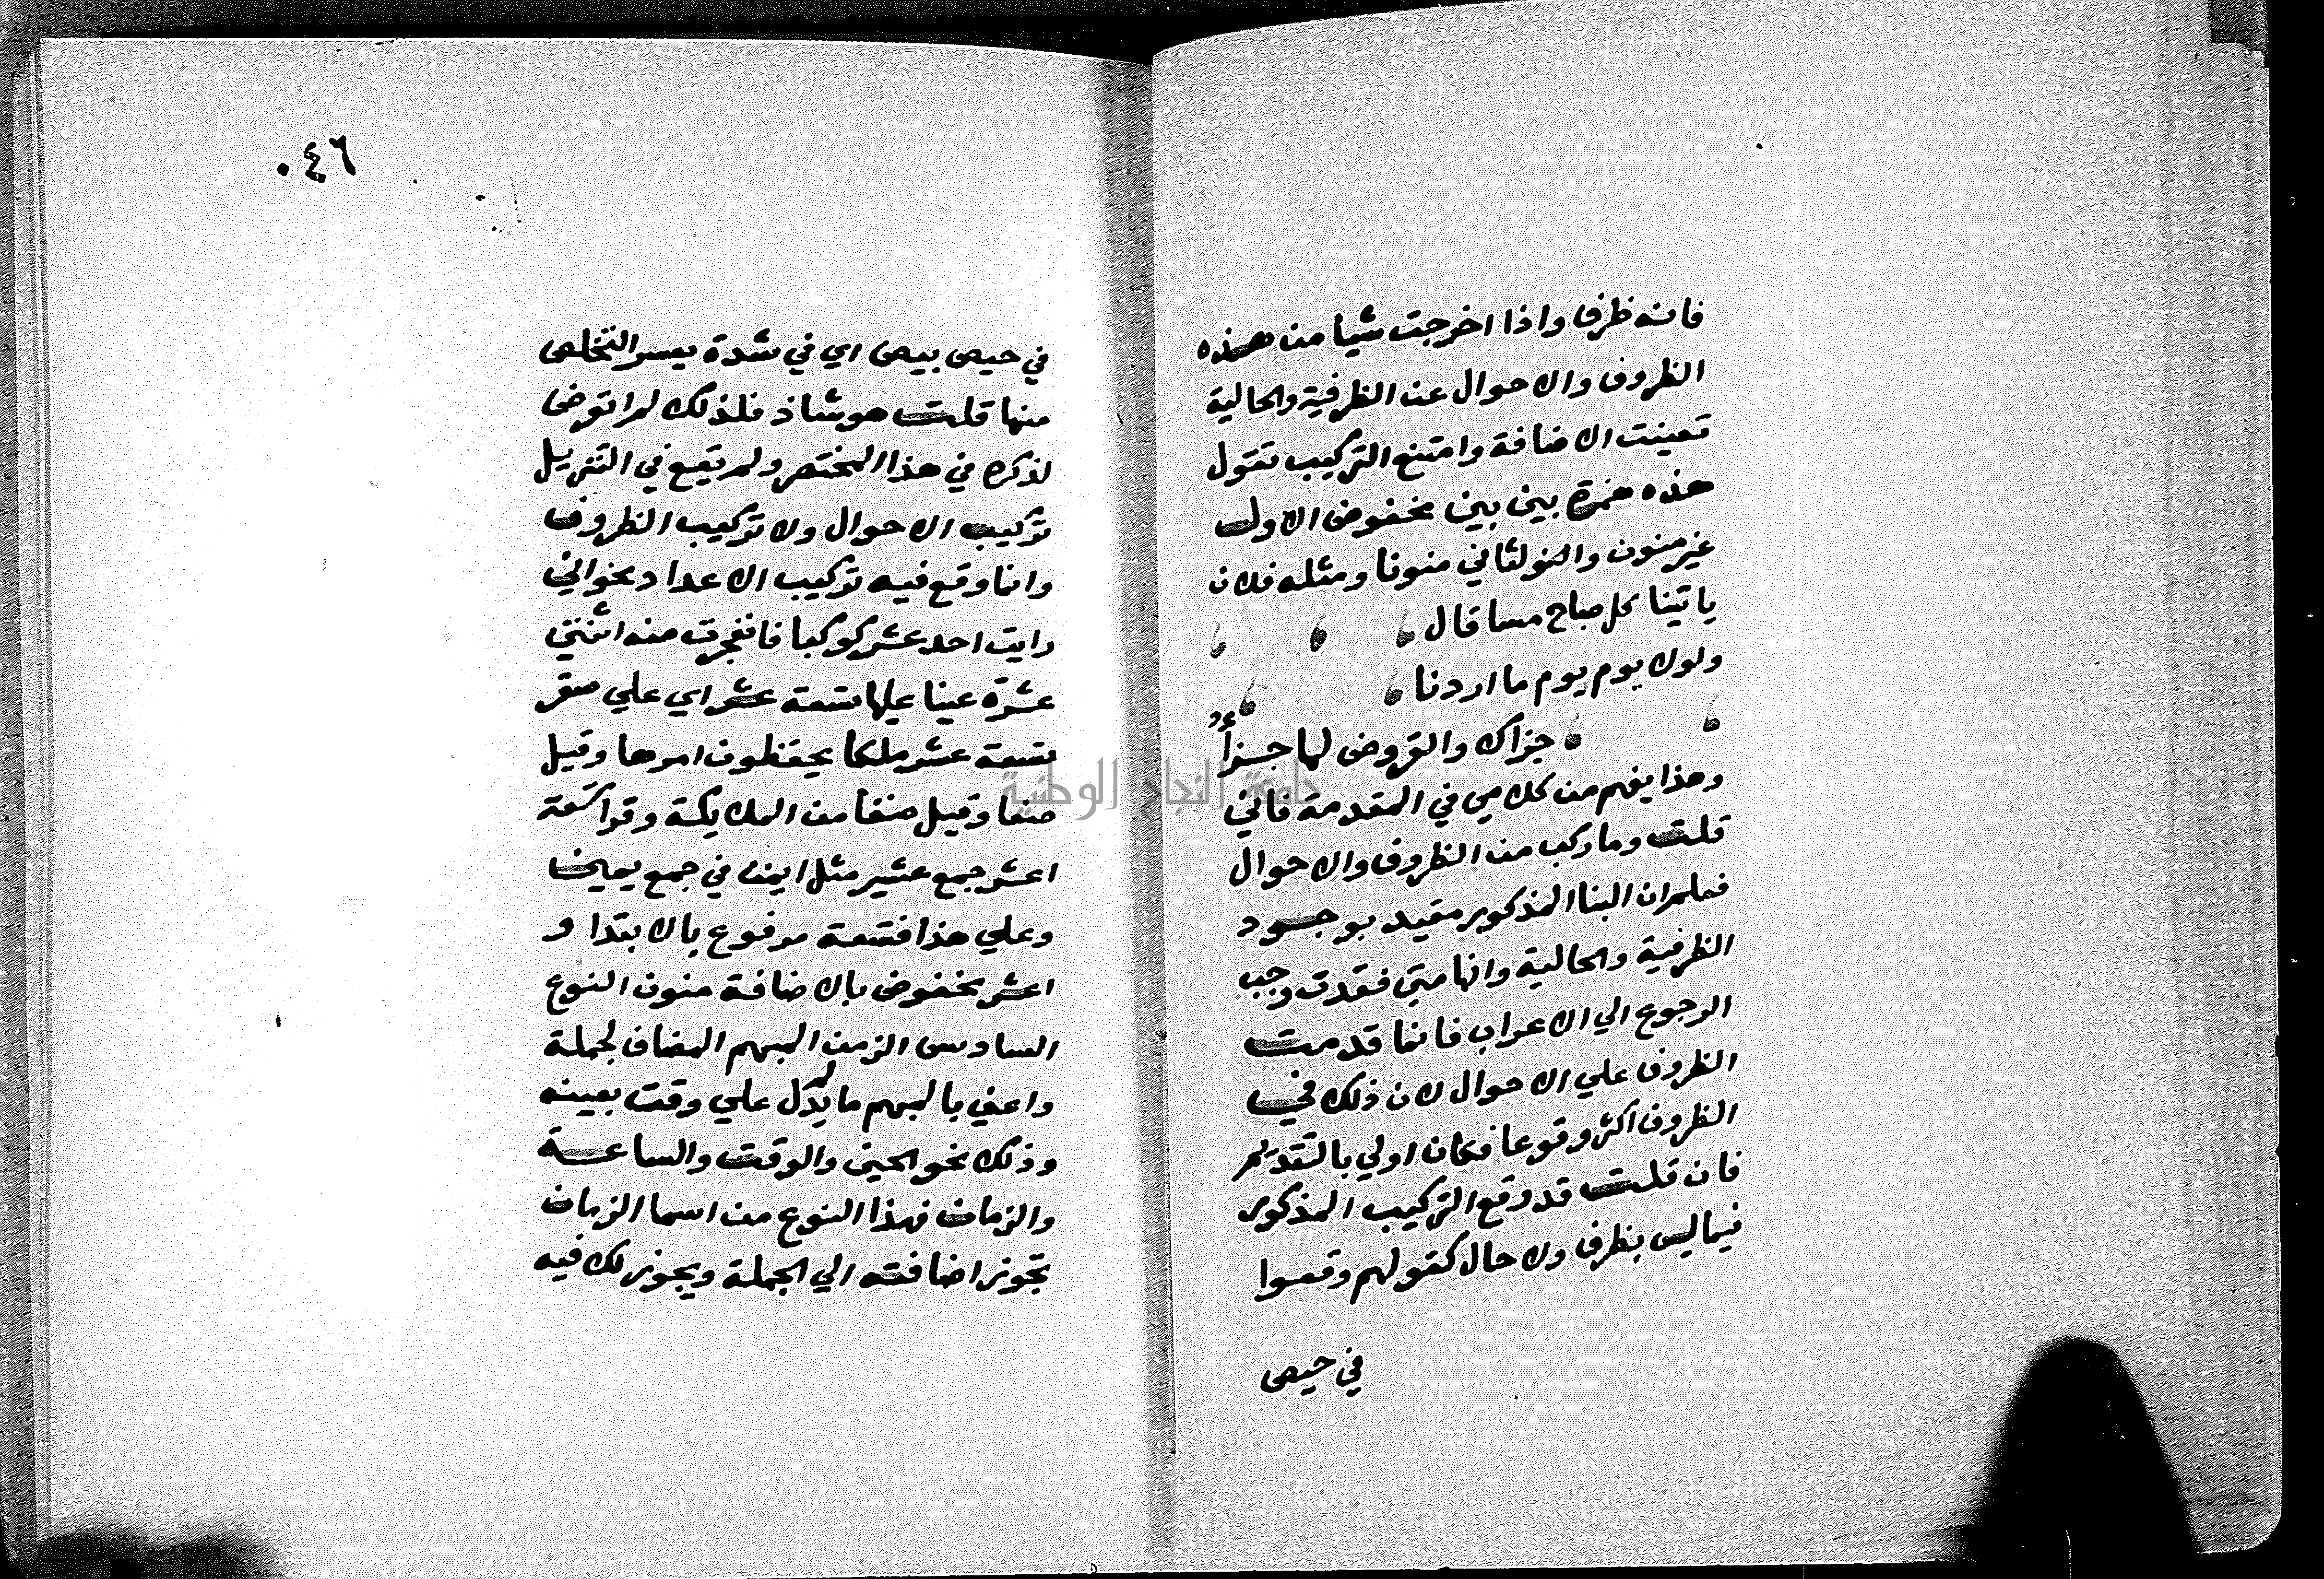 فانه ظرف واذا اخرجت شيا من هذه
الظروف والاحوال عن الظرفية والحالية
تعينت الاضافة وامتنع التركيب تقول
هذه همزة بين بين مخفوض الاول
غير منون والثاني منونا ومثله فلان
ياتينا كل صباح مسا قال
ولولا يوم يوم ما اردنا
جزاك والقروض لها جزأ
وهذا يفهم من كلامي في المقدمة فاني
قلت وما ركب من الظروف والاحوال
فعلم ان البنا المذكور مقيد بوجود
الظرفية والحالية وانها متي فقدت وجب
الرجوع الي الاعراب فانما قدمت
الظروف علي الاحوال لان ذلك في
الظروف اكثر وقوعا فكان اولي بالتقديم
فان قلت قد وقع التركيب المذكور
فيما ليس بظرف ولا حال كقولهم وقعوا
في حيص
٠٤٦
في حيص بيص اي في شدة يعسر التخلص
منها قلت هو شاذ فلذلك لم اتعرض
لذكره في هذا المختصر ولم يقع في التنزيل
تركيب الاحوال ولا تركيب الظروف
وانما وقع فيه تركيب الاعداد نحو اني
رايت احد عشر كوكبا فانفجرت منه اثنتي
عشرة عينا عليها تسعة عشر اي علي سقر
تسعة عشر ملكا يحفظون امرها وقيل
صنفا وقيل صنفا من الملايكة وقرا تسعة
اعشر جمع عشير مثل ايمن في جمع يمين
وعلي هذا فتسعة مرفوع بالابتدا و
اعشر مخفوض بالاضافة منون النوع
السادس الزمن المبهم المضاف لجملة
واعني بالمبهم ما لم يدل علي وقت بعينه
وذلك نحو الحين والوقت والساعة
والزمان فهذا النوع من اسما الزمان
تجوز اضافته الي الجملة ويجوز لك فيه
جامعة النجاح الوطنية